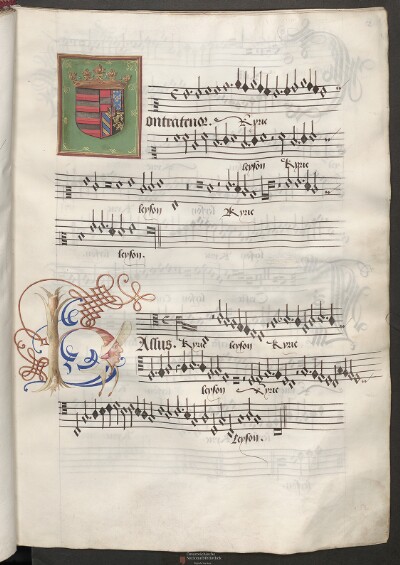 ontratenor. Kyrie
leyson Kyrie
leyson Kyrie
leyson.
Assus. Kyrie leyson Kyrie
leyson Kyrie
Leyson.